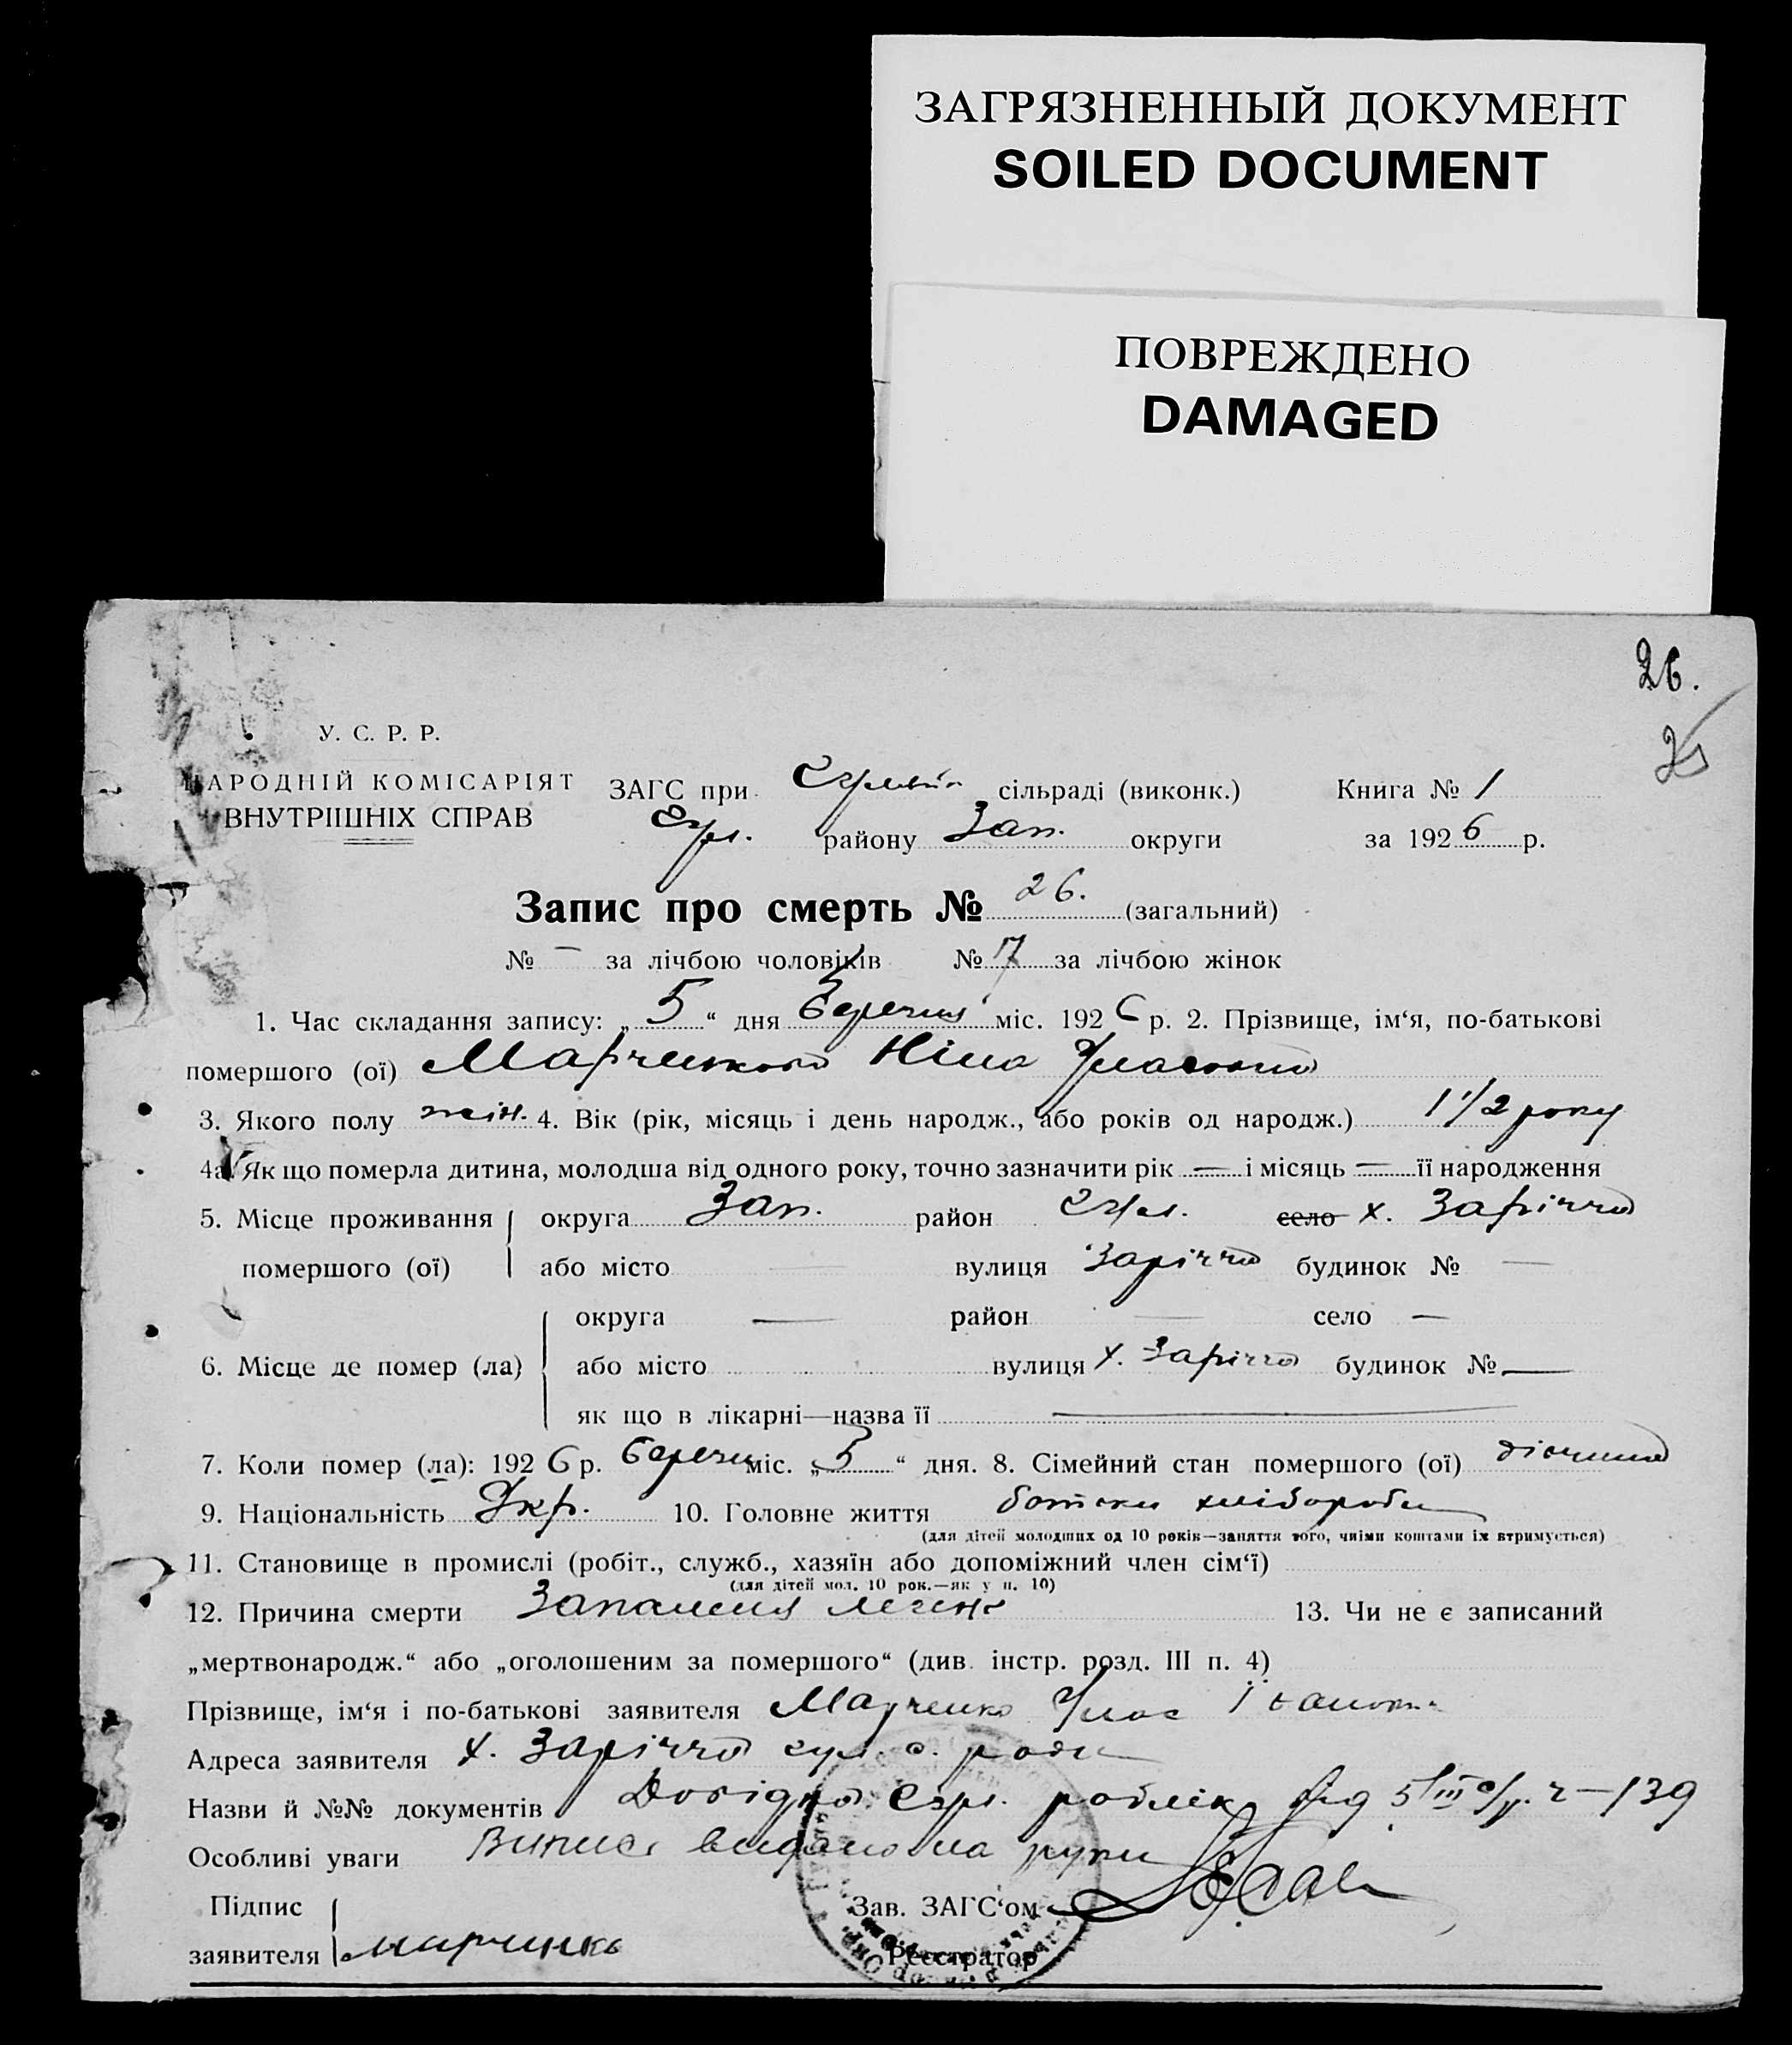 ЗАГРЯЗНЕННЫЙ ДОКУМЕНТ
SOILED DOCUMENT
ПОВРЕЖДЕНО
DAMAGED
26.
У. С. Р. Р.
НАРОДНІЙ КОМІСАРІЯТ ЗАГС при сільраді (виконк.) Книга № 1
ВНУТРІШНІХ СПРАВ району Зап. округи за 1926 р.
Запис про смерть № 26. (загальний)
№ — за лічбою чоловіків № 17 за лічбою жінок
1. Час складання запису: „5“ дня березня міс. 1926 р. 2. Прізвище, ім‘я, по-батькові
помершого (ої) Марченкова Ніна Уласовна
3. Якого полу жін. 4. Вік (рік, місяць і день народж., або років од народж.) 1 1/2 року
4а. Як що померла дитина, молодша від одного року, точно зазначити рік — і місяць — її народження
5. Місце проживання округа Зап. район село х. Заріччя
помершого (ої) або місто — вулиця Заріччя будинок № —
округа — район — село —
6. Місце де помер (ла) або місто вулиця х. Заріччя будинок № —
як що в лікарні—назва її —
7. Коли помер (ла): 1926 р. березня міс. „3“ дня. 8. Сімейний стан помершого (ої) дівчина
9. Національність Укр. 10. Головне життя батьки хлібороби
(для дітей молодших од 10 років—заняття того, чиїми коштами їх втримується)
11. Становище в промислі (робіт., служб., хазяїн або допоміжний член сім‘ї)
(для дітей мол. 10 рок.—як у п. 10)
12. Причина смерти Запалення легень 13. Чи не є записаний
„мертвонародж.“ або „оголошеним за помершого“ (див. інстр. розд. III п. 4)
Прізвище, ім‘я і по-батькові заявителя Марченко Улас Іванович
Адреса заявителя х. Заріччя с. ради
Назви й №№ документів Довідка від 5/III ч—139
Особливі уваги Випись видано на руки
Підпис Зав. ЗАГС‘ом
заявителя Марченко Реєстратор